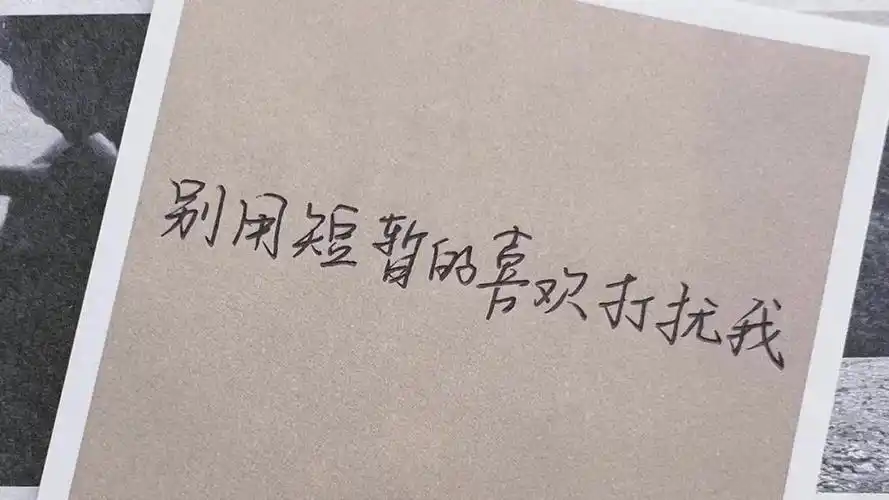 别用短暂的喜欢打扰我